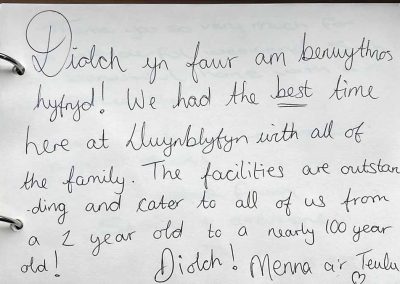 Diolch yn fawr am benwythnos
hyfryd! We had the best time
here at Llwynblyfyn with all of
the family. The facilities are outstan
-ding and cater to all of us from
a 2 year old to a nearly 100 year
old! Diolch! Menna a'r Teulu